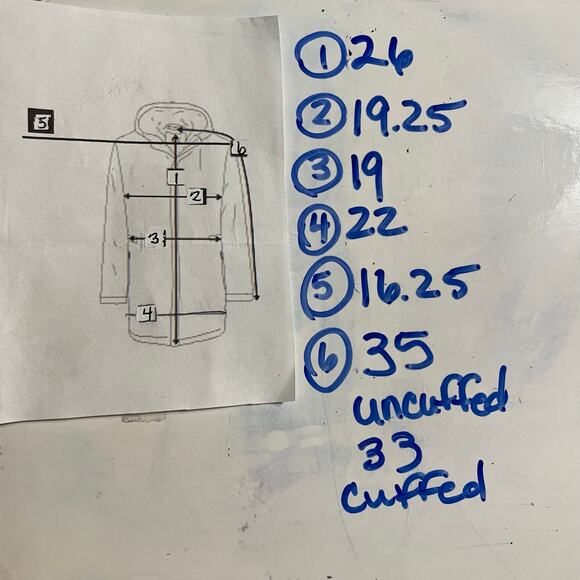 5
6
1
2
3
4
① 26
② 19.25
③ 19
④ 22
⑤ 16.25
⑥ 35
uncuffed
33
cuffed